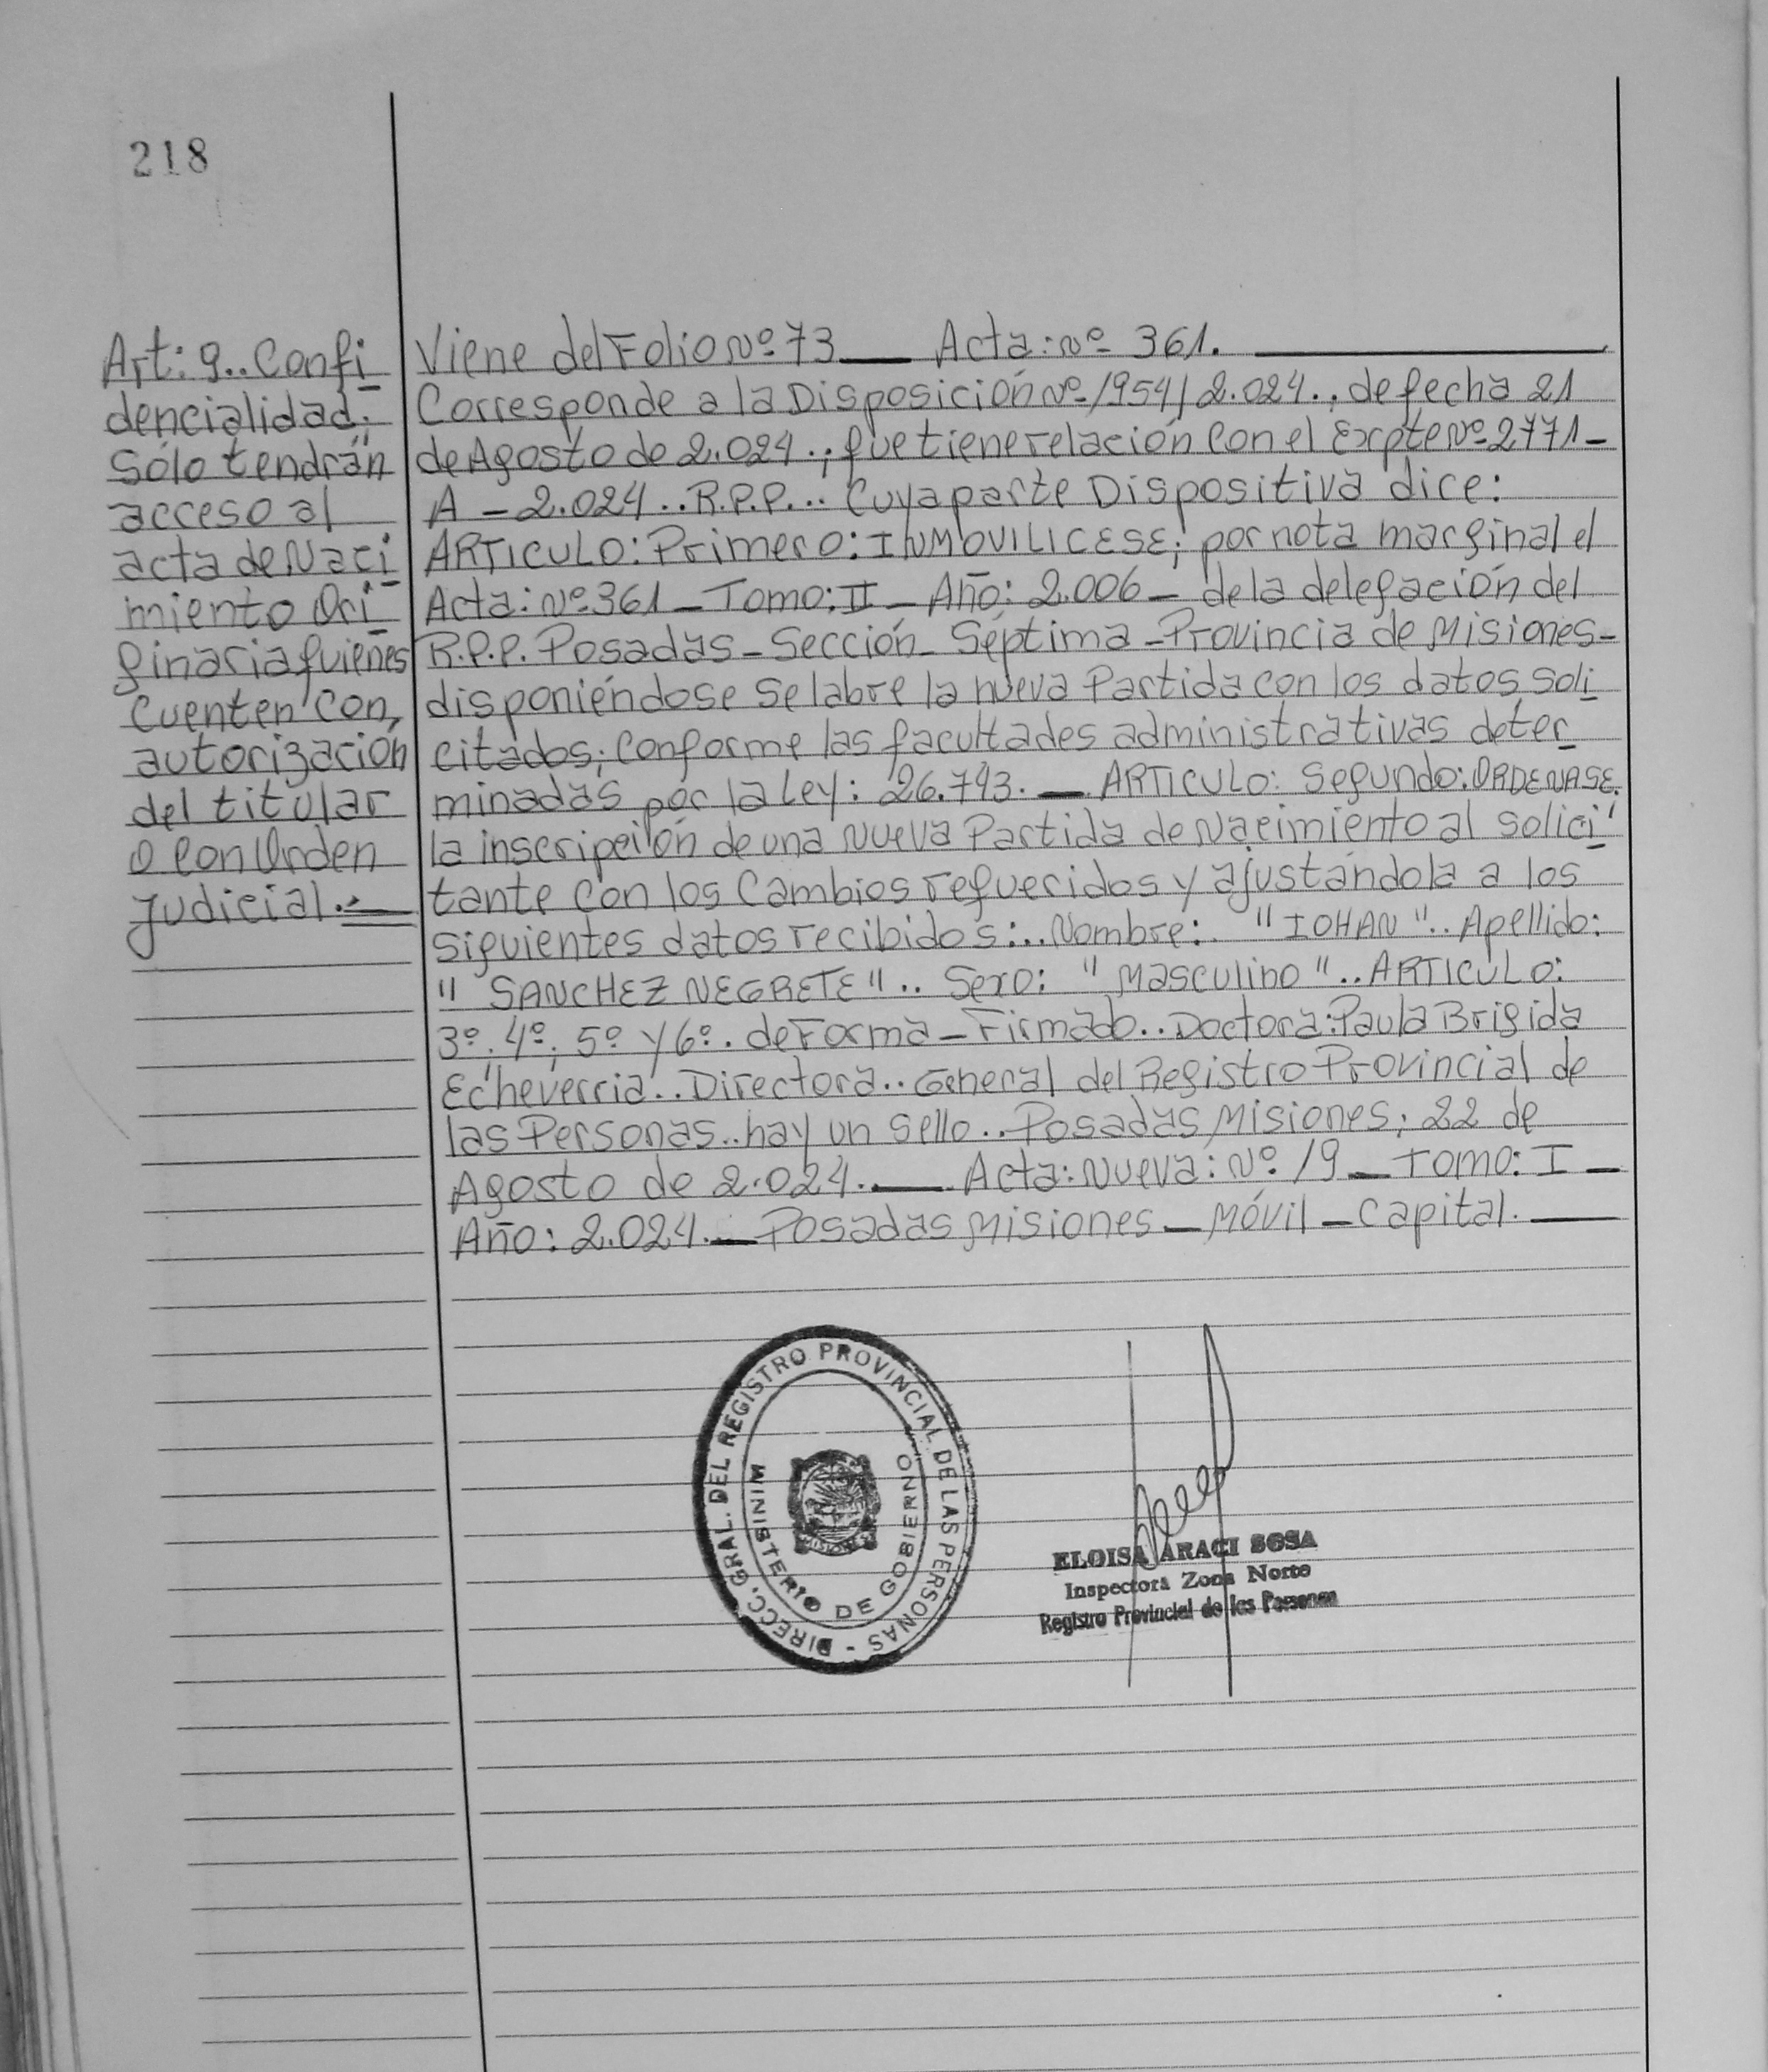 218
Art: 9.. Confi
dencialidad;
Sólo tendrán
acceso al
acta de Naci
miento Ori
ginaria quienes
Cuenten con,
autorización
del titular
O con Orden
Judicial.-
Viene del Folio Nº 73 — Acta: Nº 361.
Corresponde a la Disposición Nº 1954/2.024., de fecha 21
de Agosto de 2.024.; que tiene relación con el Expte Nº 2771-
A - 2.024.. R.P.P... Cuya parte Dispositiva dice:
ARTICULO: Primero: INMOVILICESE; por nota marginal el
Acta: Nº 361 - Tomo: II - Año: 2.006 - de la delegación del
R.P.P. Posadas - Sección - Séptima - Provincia de Misiones -
disponiéndose se labre la nueva Partida con los datos soli
citados; conforme las facultades administrativas deter
minadas por la Ley: 26.743. — ARTICULO: Segundo: ORDENASE.
la inscripción de una Nueva Partida de Nacimiento al solici
tante con los Cambios requeridos y ajustándola a los
siguientes datos recibidos:.. Nombre: "IOHAN".. Apellido:
"SANCHEZ NEGRETE".. Sexo: "Masculino".. ARTICULO:
3º; 4º; 5º y 6º. de Forma - Firmado.. Doctora: Paula Brigida
Echeverria.. Directora.. General del Registro Provincial de
las Personas.. hay un sello.. Posadas Misiones; 22 de
Agosto de 2.024. — Acta: Nueva: Nº 19 - Tomo: I -
Año: 2.024. — Posadas Misiones - Móvil - Capital. —
DIRECC. GRAL. DEL REGISTRO PROVINCIAL DE LAS PERSONAS -
MINISTERIO DE GOBIERNO
MISIONES
ELOISA ARACI SOSA
Inspectora Zona Norte
Registro Provincial de las Personas